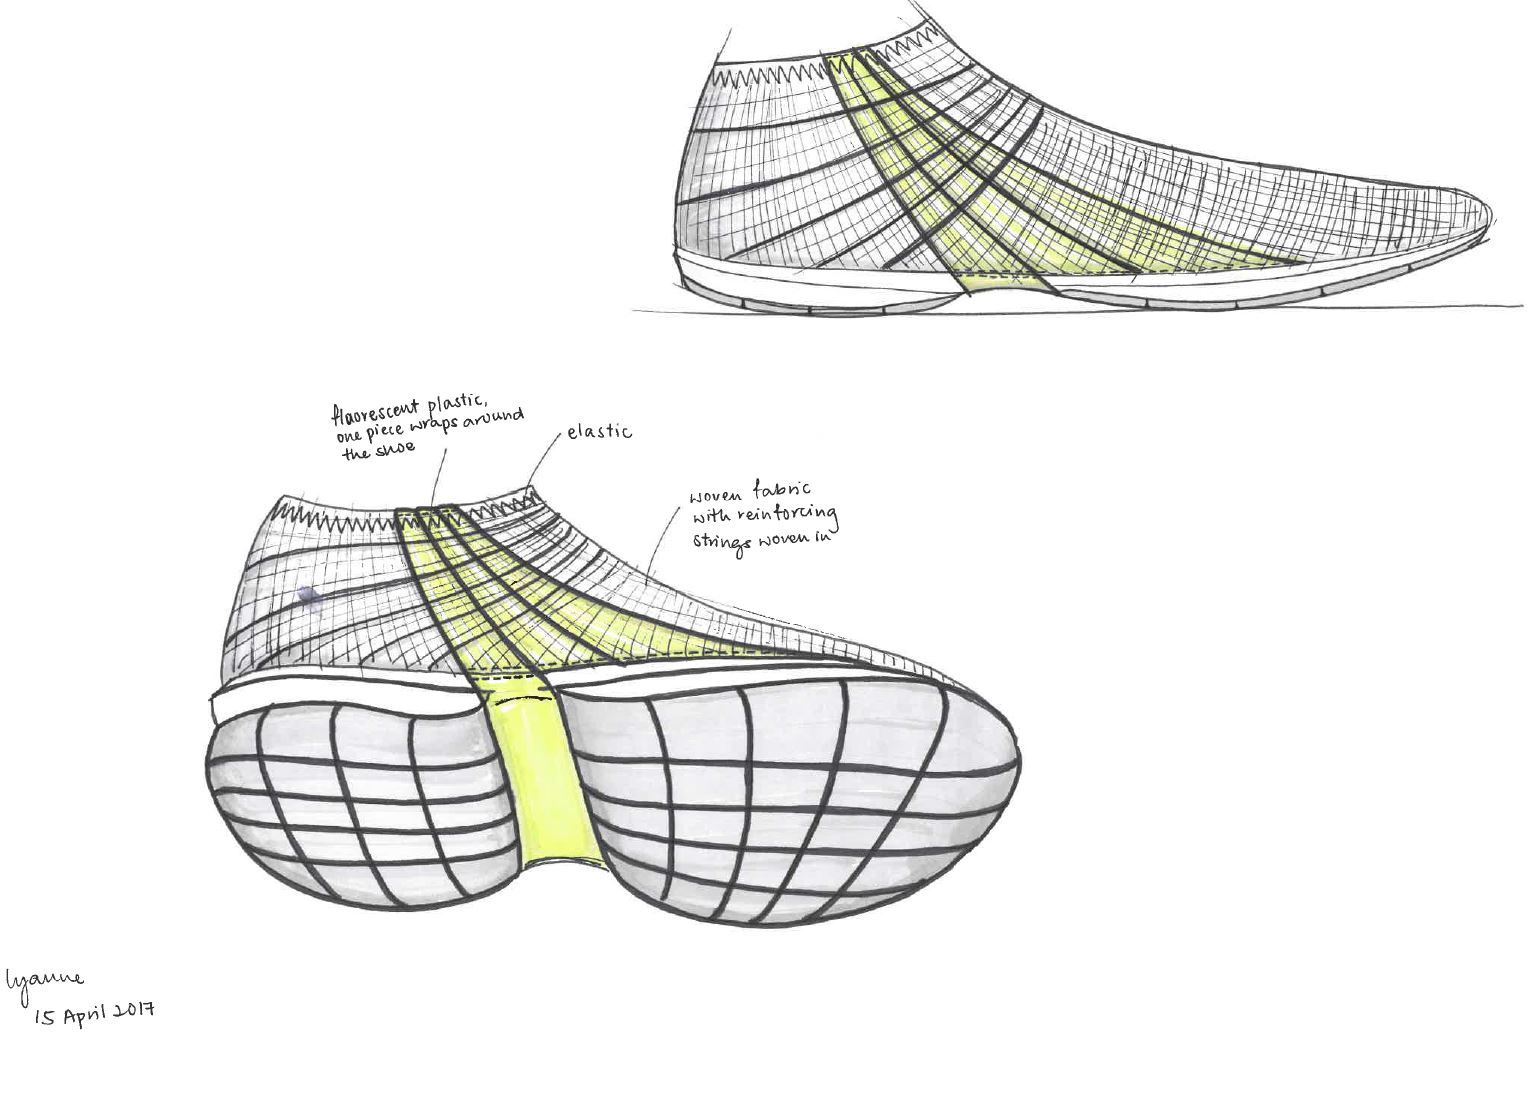 fluorescent plastic,
one piece wraps around
the shoe
elastic
woven fabric
with reinforcing
strings woven in
lyanne
15 April 2017